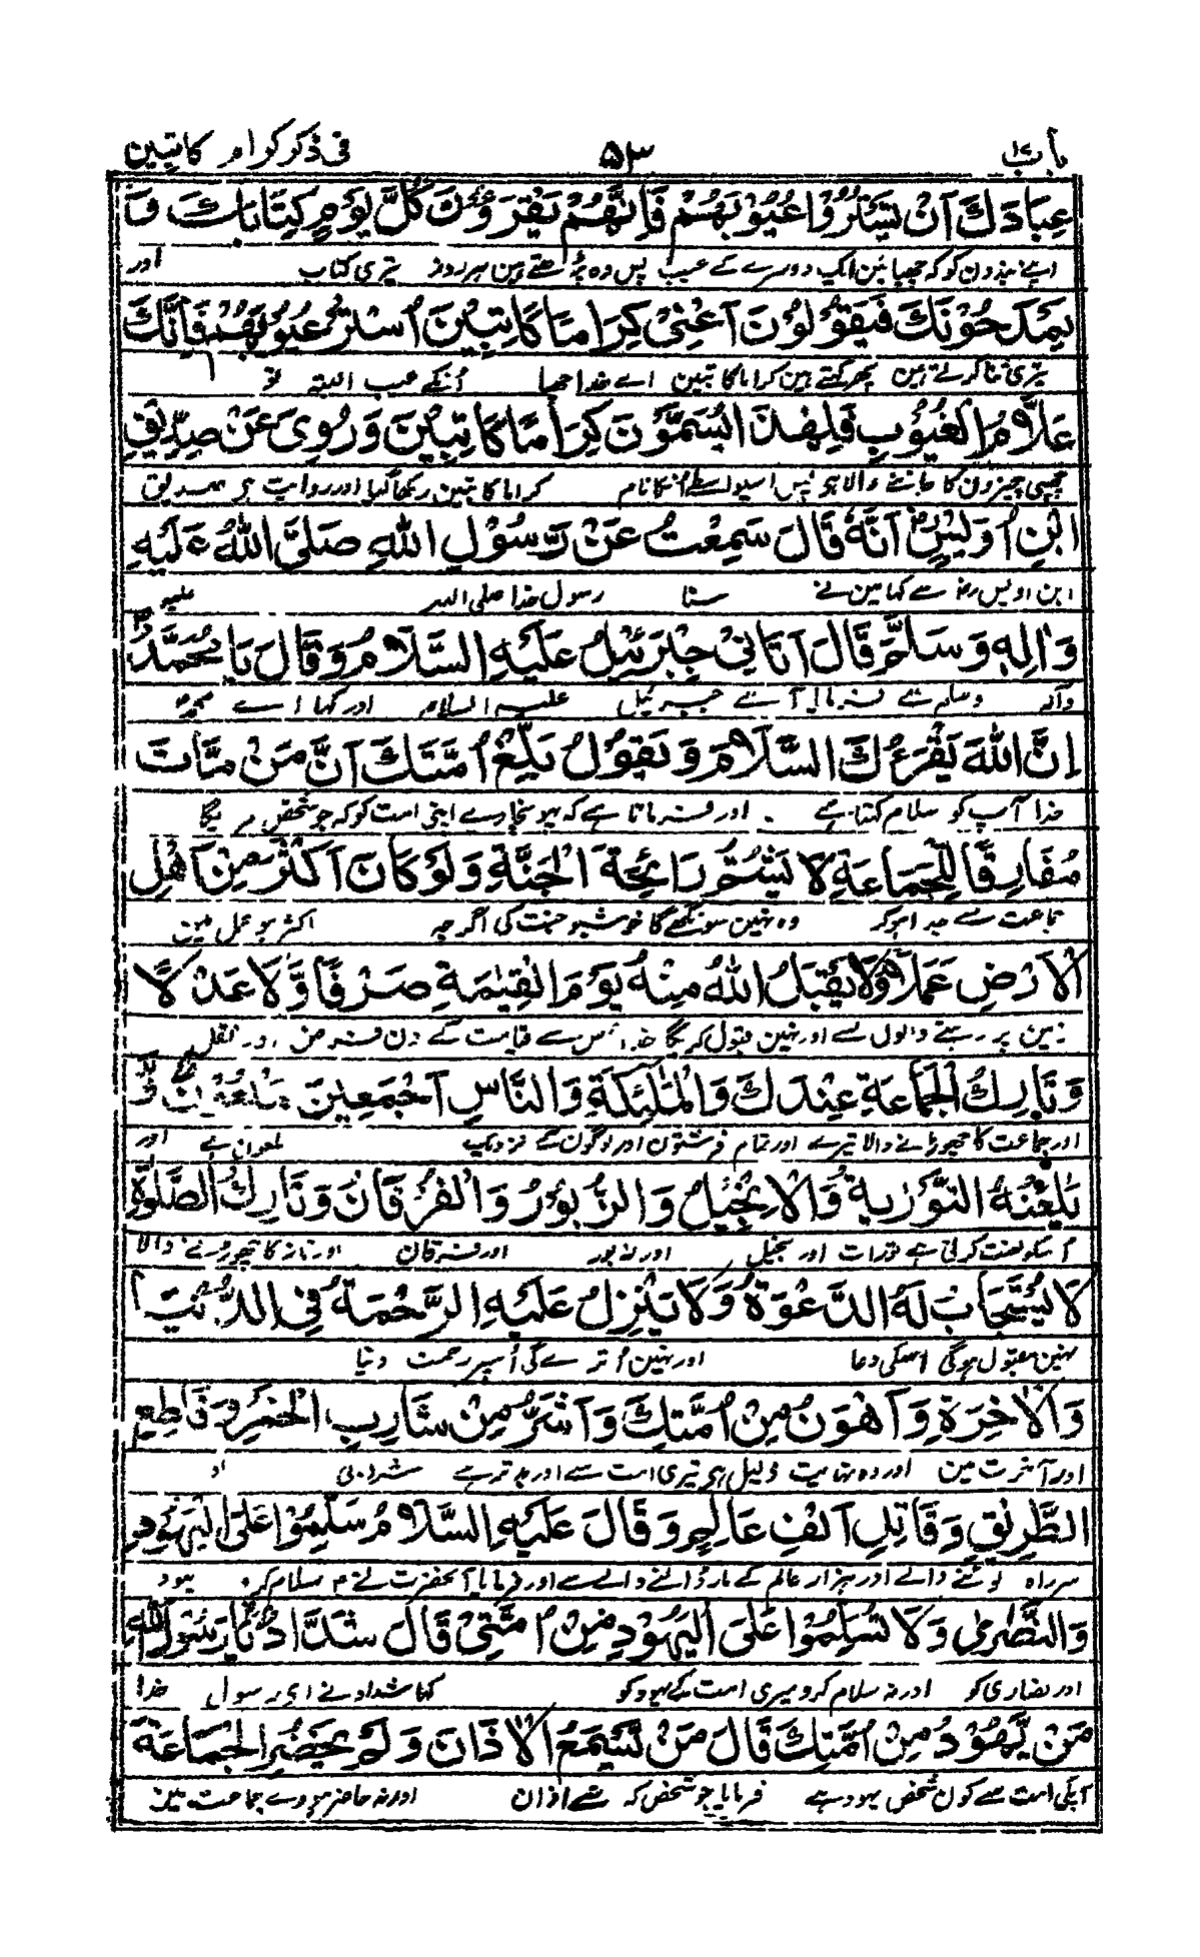 باب ۱۲ ۵۳ فی ذکر کرام کاتبین
عِبَادَكَ اَنْ يَسْتُرُوْا عُيُوْبَهُمْ فَاِنَّهُمْ يَقْرَءُوْنَ كُلَّ يَوْمٍ كِتَابَكَ وَ
اپنے بندون کو کہ چھپائین ایک دوسرے کے عیب پس وہ پڑھتے ہین ہر روز تیری کتاب اور
يَمْدَحُوْنَكَ فَيَقُوْلُوْنَ اَعْنِيْ كِرَامًا كَاتِبِيْنَ اُسْتُرْ عُيُوْبَهُمْ فَاِنَّكَ
تیری ثنا کرتے ہین پھر کہتے ہین کراما کاتبین اے خدا چھپا اُنکے عیب البتہ تو
عَلَّامُ الْغُيُوْبِ فَلِهٰذَا يُسَمَّوْنَ كِرَامًا كَاتِبِيْنَ وَرُوِيَ عَنْ صِدِّيْقِ
چھپی چیزون کا جاننے والا ہو پس اسیواسطے انکا نام کراما کاتبین رکھا گیا اور روایت ہی صدیق
ابْنِ اُوَيْسٍ اَنَّهٗ قَالَ سَمِعْتُ عَنْ رَسُوْلِ اللّٰهِ صَلَّى اللّٰهُ عَلَيْهِ
ابن اویس رض سے کہا مین نے سنا رسول خدا صلی اللہ علیہ
وَاٰلِهٖ وَسَلَّمَ قَالَ اَتَانِيْ جِبْرَئِيْلُ عَلَيْهِ السَّلَامُ وَقَالَ يَا مُحَمَّدُ
وآلہ وسلم سے فرمایا آئے جبرئیل علیہ السلام اور کہا اے محمد
اِنَّ اللّٰهَ يَقْرَءُكَ السَّلَامَ وَيَقُوْلُ بَلِّغْ اُمَّتَكَ اَنَّ مَنْ مَّاتَ
خدا آپ کو سلام کہتا ہے اور فرماتا ہے کہ پہونچا دے اپنی امت کو کہ جو شخص مریگا
مُفَارِقًا لِلْجَمَاعَةِ لَا يَشُمُّ رَائِحَةَ الْجَنَّةِ وَلَوْ كَانَ اَكْثَرَ مِنْ اَهْلِ
جماعت سے جدا ہوکر وہ نہین سونگھے گا خوشبو جنت کی اگرچہ اکثر ہو عمل مین
الْاَرْضِ عَمَلًا وَلَا يَقْبَلُ اللّٰهُ مِنْهُ يَوْمَ الْقِيٰمَةِ صَرْفًا وَّلَا عَدْلًا
زمین پر رہنے والون سے اور نہین قبول کریگا خدا اُس سے قیامت کے دن فرض اور نفل
وَتَارِكُ الْجَمَاعَةِ عِنْدَكَ وَالْمَلٰئِكَةِ وَالنَّاسِ اَجْمَعِيْنَ مَلْعُوْنٌ وَّ
اور جماعت کا چھوڑنے والا تیرے اور تمام فرشتون اور لوگون کے نزدیک ملعون ہے اور
يَلْعَنُهُ التَّوْرٰيةُ وَالْاِنْجِيْلُ وَالزَّبُوْرُ وَالْفُرْقَانُ وَتَارِكُ الصَّلٰوةِ
اُسکو لعنت کرتی ہے تورات اور انجیل اور زبور اور فرقان اور نماز کا چھوڑنے والا
لَا يُسْتَجَابُ لَهُ الدَّعْوَةُ وَلَا يَنْزِلُ عَلَيْهِ الرَّحْمَةُ فِي الدُّنْيَا
نہین مقبول ہوگی اسکی دعا اور نہین اُترے گی اُسپر رحمت دنیا
وَالْاٰخِرَةِ وَاَهْوَنُ مِنْ اُمَّتِكَ وَاَشَرُّ مِنْ شَارِبِ الْخَمْرِ وَقَاطِعِ
اور آخرت مین اور وہ نہایت ذلیل ہے تیری امت سے اور بدتر ہے شرابی
الطَّرِيْقِ وَقَاتِلِ اَلْفِ عَالِمٍ وَقَالَ عَلَيْهِ السَّلَامُ سَلِّمُوْا عَلَى الْيَهُوْدِ
سرراہ لوٹنے والے اور ہزار عالم کے مارڈالنے والے سے اور فرمایا آنحضرت نے سلام کرو یہود
وَالنَّصٰرٰى وَلَا تُسَلِّمُوْا عَلَى الْيَهُوْدِ مِنْ اُمَّتِيْ قَالَ شَدَّادُ يَا رَسُوْلَ اللّٰهِ
اور نصاری کو اور نہ سلام کرو میری امت کے یہود کو کہا شداد نے ای رسول خدا
مَنْ يَّهُوْدُ مِنْ اُمَّتِكَ قَالَ مَنْ يَّسْمَعُ الْاَذَانَ وَلَمْ يَحْضُرِ الْجَمَاعَةَ
آپکی امت سے کون شخص یہود ہے فرمایا جو شخص کہ سنے اذان اور نہ حاضر ہووے جماعت مین